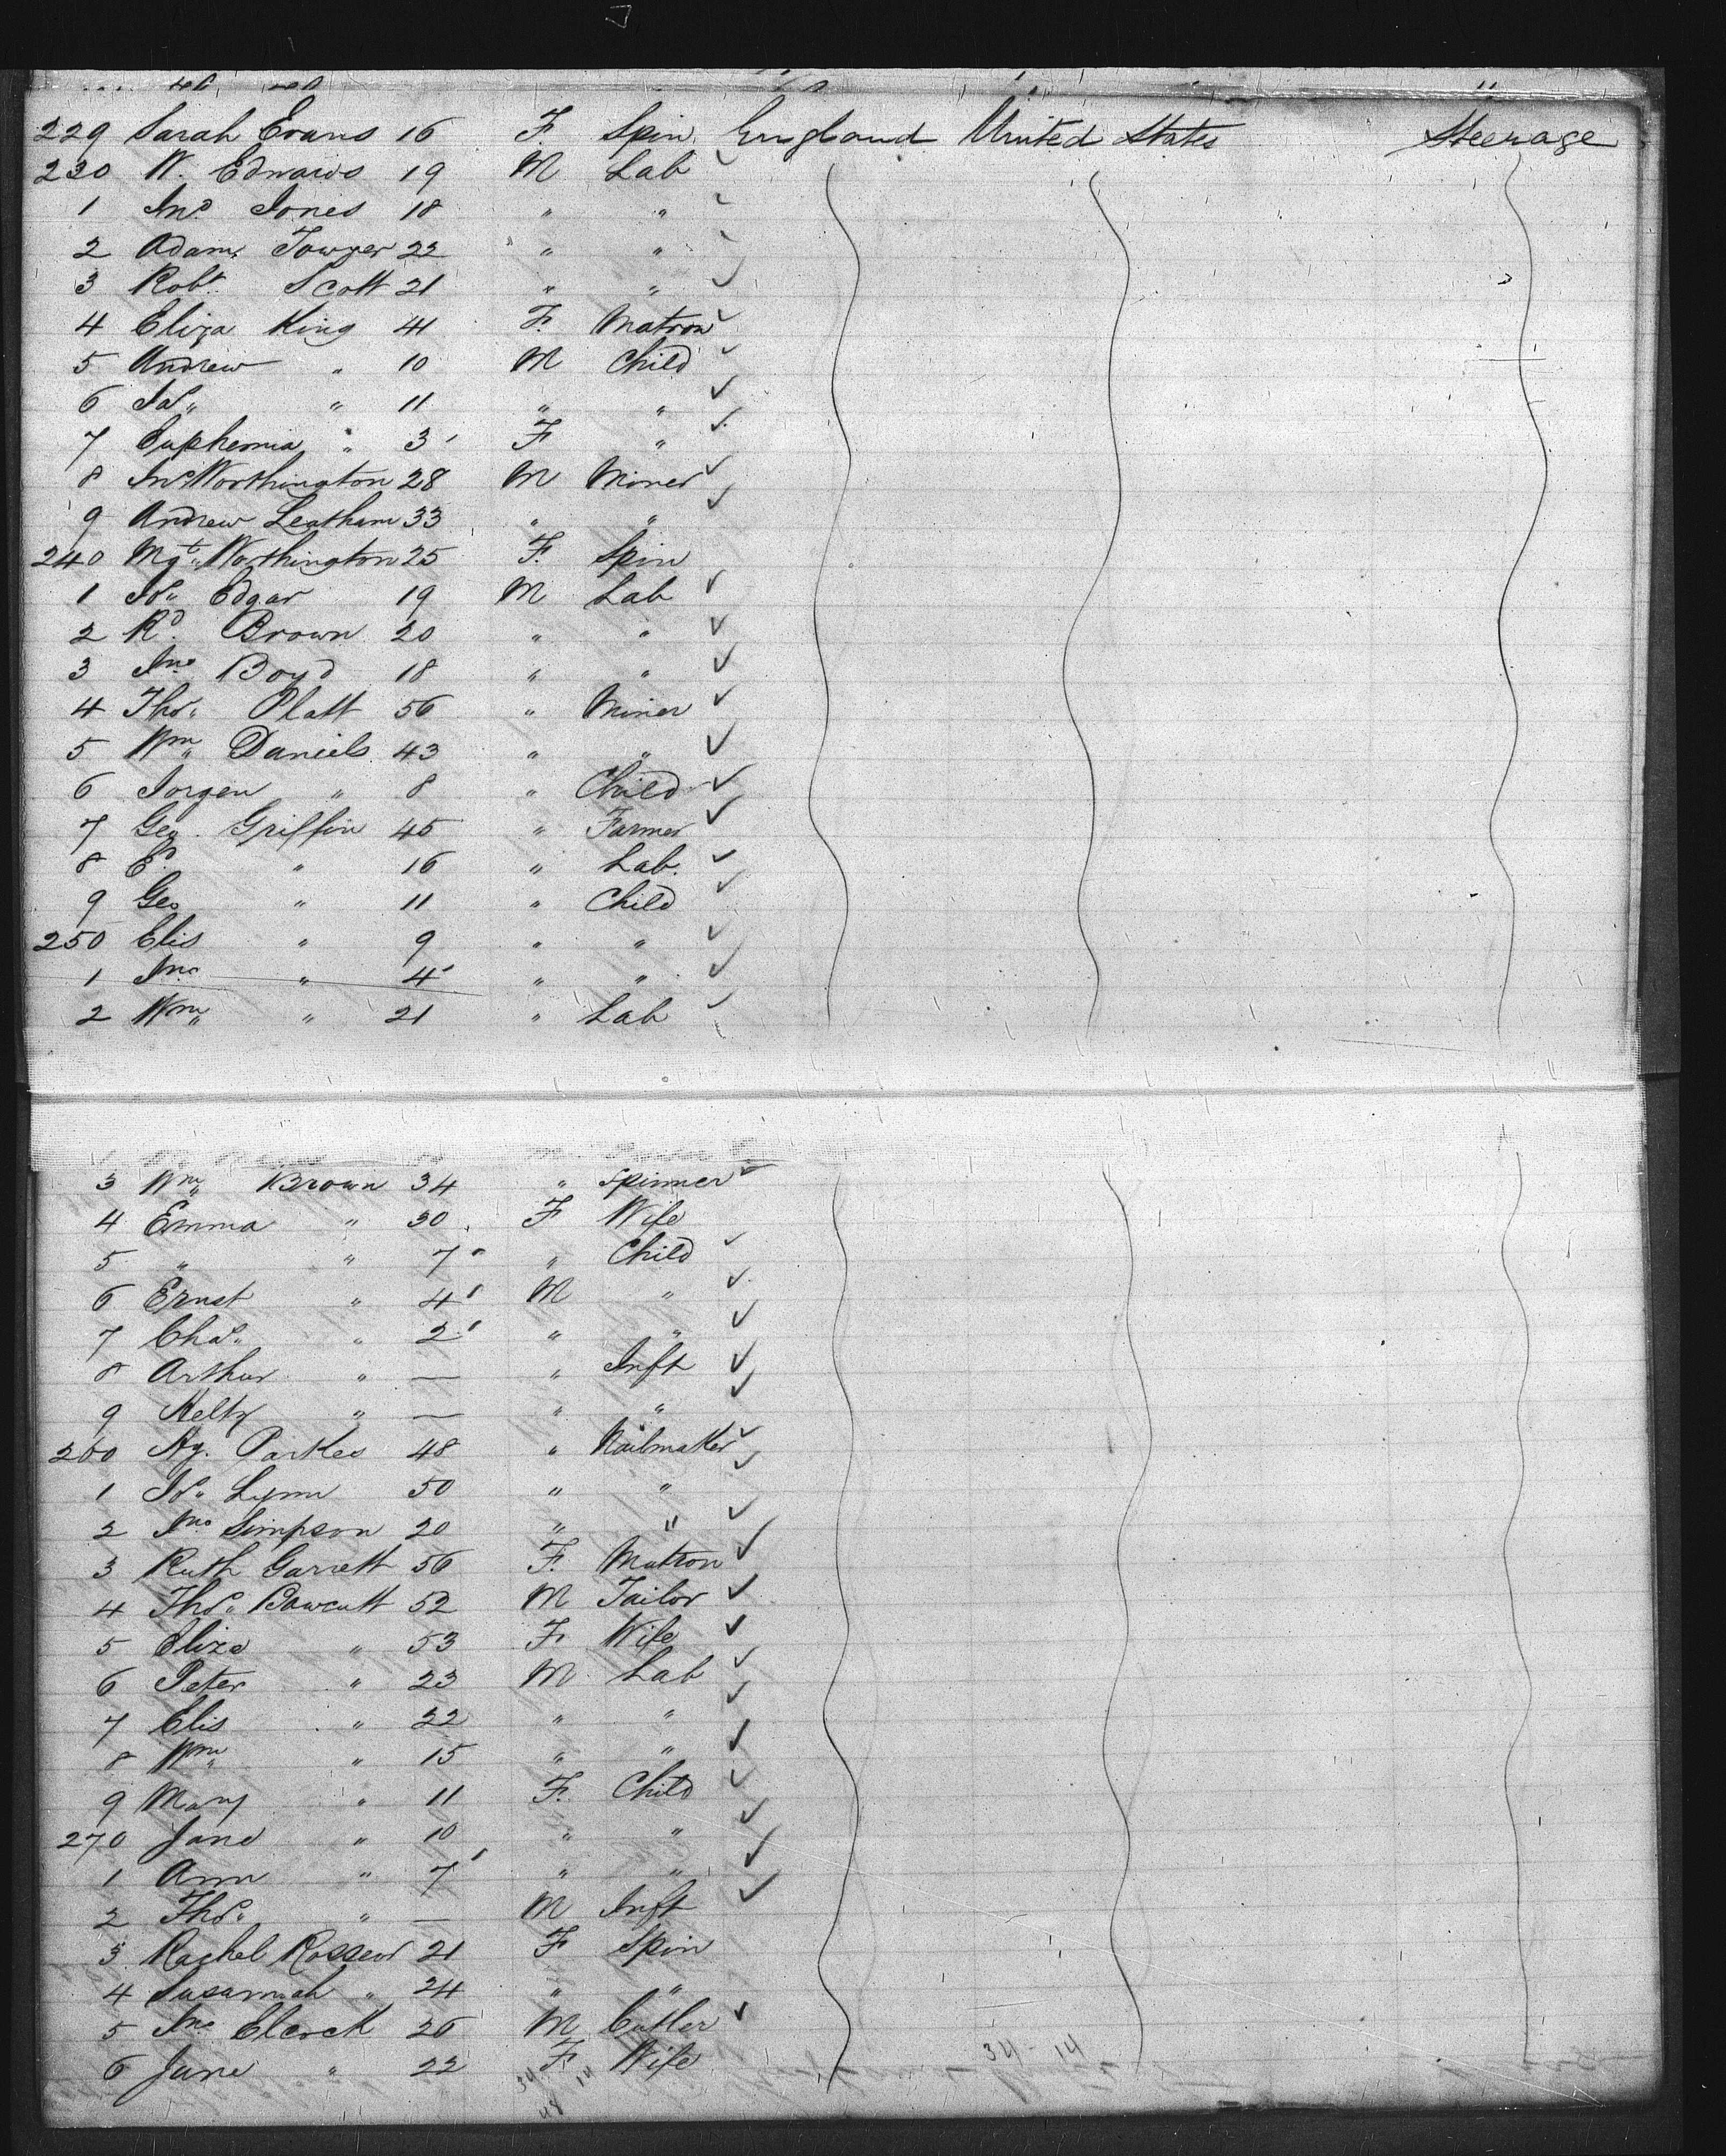 229 Sarah Evans 16 F. Spin. England United States Steerage
230 W. Edwards 19 M Lab
1 Jno Jones 18 " "
2 Adam 22 " "
3 Robt. Scott 21 " "
4 Eliza King 41 F. Matron
5 Andrew " 10 M Child
6 Jas " 11 " "
7 Euphemia " 3 F "
8 Jno Worthington 28 M Miner
9 Andrew Leatham 33 " "
240 Mgt Worthington 25 F. Spin
1 Js Edgar 19 M Lab
2 Rd. Brown 20 " "
3 Jno Boyd 18 " "
4 Thos Platt 56 " Miner
5 Wm Daniels 43 " "
6 Jorgen " 8 " Child
7 Geo. Griffin 45 " Farmer
8 E. " 16 " Lab.
9 Geo " 11 " Child
250 Elis " 9 " "
1 Jno " 4 " "
2 Wm " 21 " Lab
3 Wm Brown 34 " Spinner
4 Emma " 30 F Wife
5 " " 7 " Child
6 Ernst " 4 M "
7 Chas " 2 " "
8 Arthur " — " Inft
9 " — " "
260 Hy. Parkes 48 " Nailmaker
1 Js Lynn 50 " "
2 Jno Simpson 20 " "
3 Ruth Garrett 56 F. Matron
4 Thos Bawcutt 52 M Tailor
5 Eliza " 53 F Wife
6 Peter " 23 M Lab
7 Elis " 22 " "
8 Wm " 15 " "
9 Mary " 11 F. Child
270 Jane " 10 " "
1 Ann " 7 " "
2 Thos " — M Inft
3 Rachel 21 F Spin
4 Susannah " 24 " "
5 Jno Clerck 26 M Cutler
6 Jane " 22 F. Wife
34 14 34 - 14
48